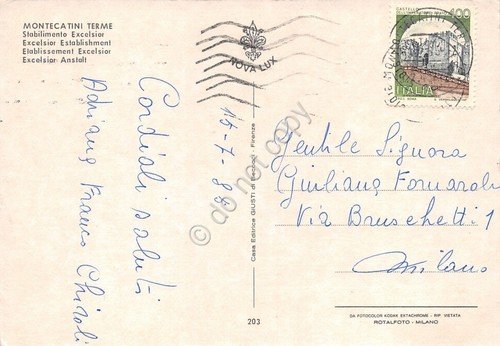 MONTECATINI TERME
Stabilimento Excelsior
Excelsior Establishment
Etablissement Excelsior
Excelsior Anstalt
NOVA LUX
400
ITALIA
Cordiali saluti
15-7-82
Adriana Franco Chiroli
Casa Editrice GIUSTI di S. Becocci - Firenze
do not copy
Gentile Signora
Giuliana Fornaroli
Via Bruschetti 1
Milano
203
DA FOTOCOLOR KODAK EKTACHROME - RIP. VIETATA
ROTALFOTO - MILANO